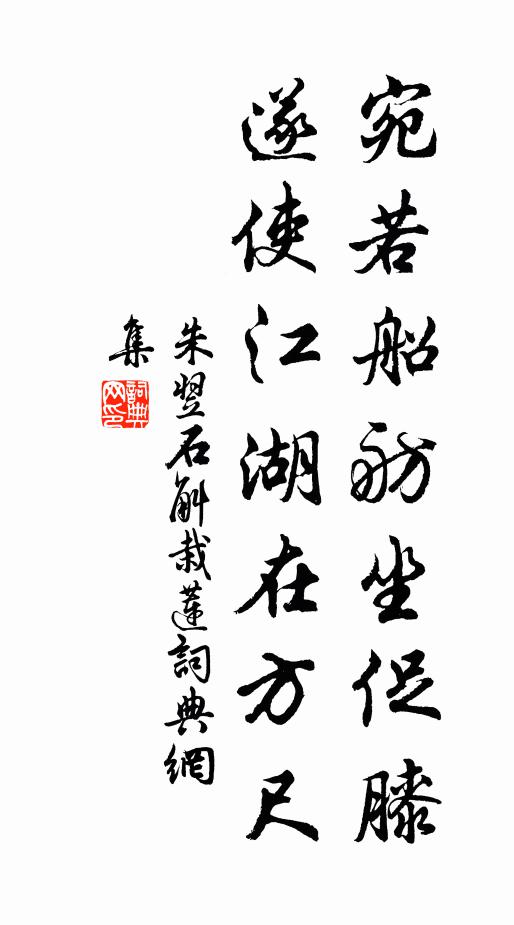 宛若船舫坐促膝
遂使江湖在方尺
朱翌石斛栽蓮詞典網
集
詞典網印